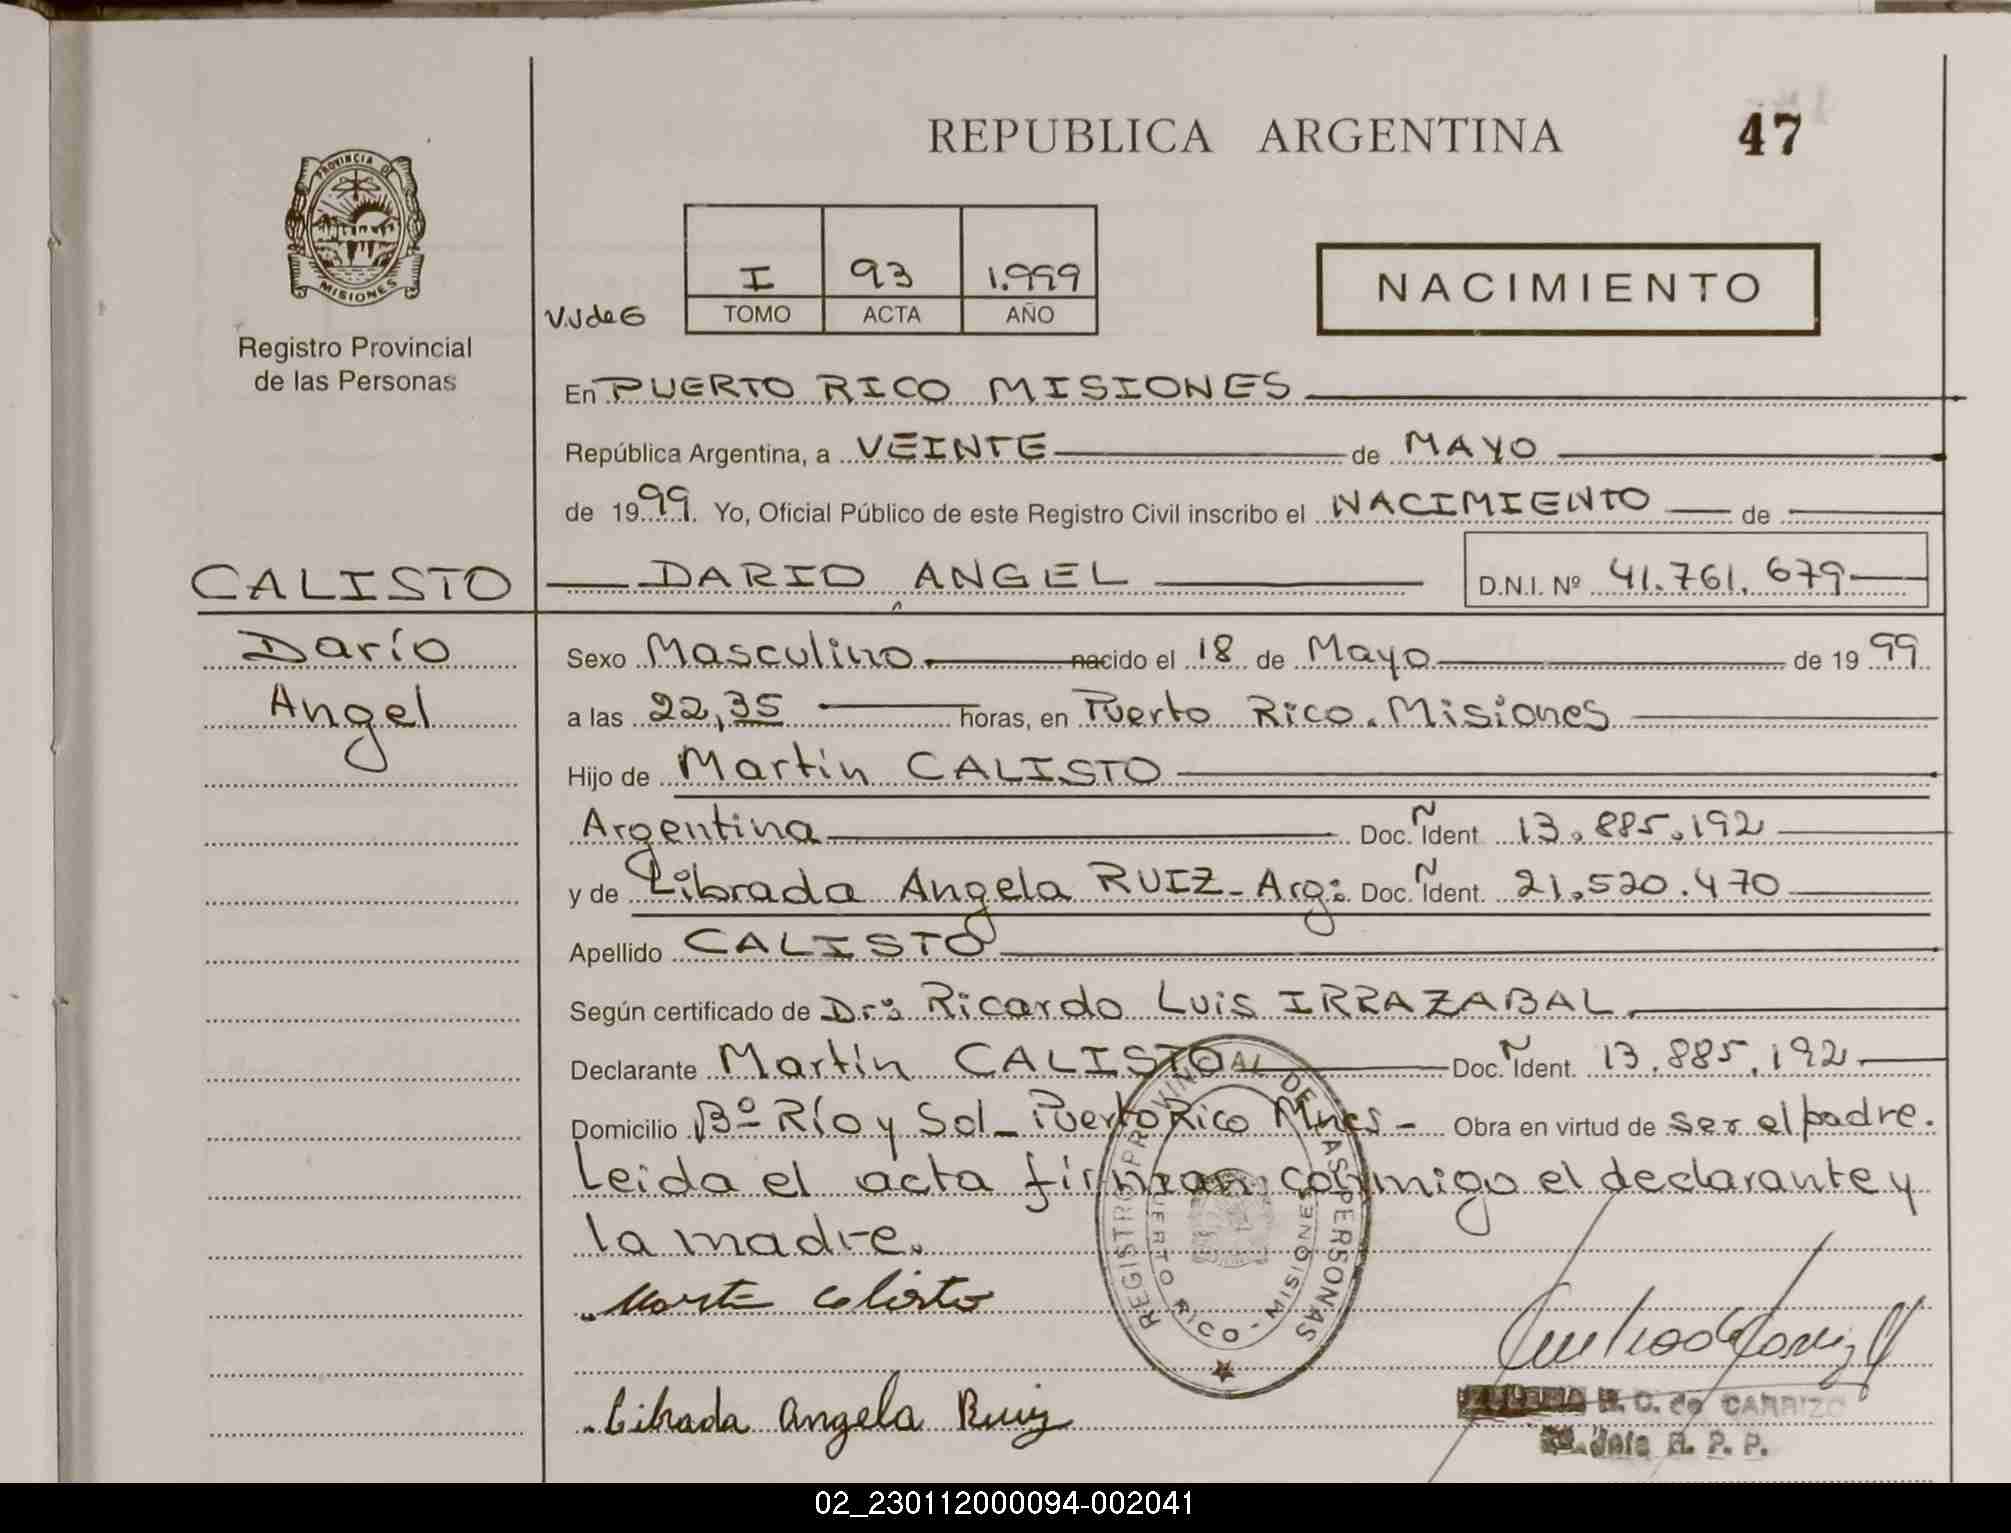 REPUBLICA ARGENTINA
47
PROVINCIA DE
MISIONES
Registro Provincial
de las Personas
V.J de G
I 93 1.999
TOMO ACTA AÑO
NACIMIENTO
En PUERTO RICO MISIONES
República Argentina, a VEINTE de MAYO
de 1999. Yo, Oficial Público de este Registro Civil inscribo el NACIMIENTO de
CALISTO DARIO ANGEL D.N.I. Nº 41.761.679
Darío Sexo Masculino nacido el 18 de Mayo de 1999
Angel a las 22,35 horas, en Puerto Rico. Misiones
Hijo de Martín CALISTO
Argentina Doc. Ñ Ident. 13.885.192
y de Librada Angela RUIZ - Arg: Doc. Ñ Ident. 21.520.470
Apellido CALISTO
Según certificado de Dr: Ricardo Luis IRRAZABAL
Declarante Martín CALISTO Doc. Ñ Ident. 13.885.192
Domicilio Bº Río y Sol - Puerto Rico Mnes - Obra en virtud de ser el padre.
Leida el acta firman conmigo el declarante y
la madre.
REGISTRO PROVINCIAL DE LAS PERSONAS
PUERTO RICO - MISIONES
Martin Calisto
Librada Angela Ruiz
H. C. de CARRIZO
Jefe R. P. P.
02_230112000094-002041